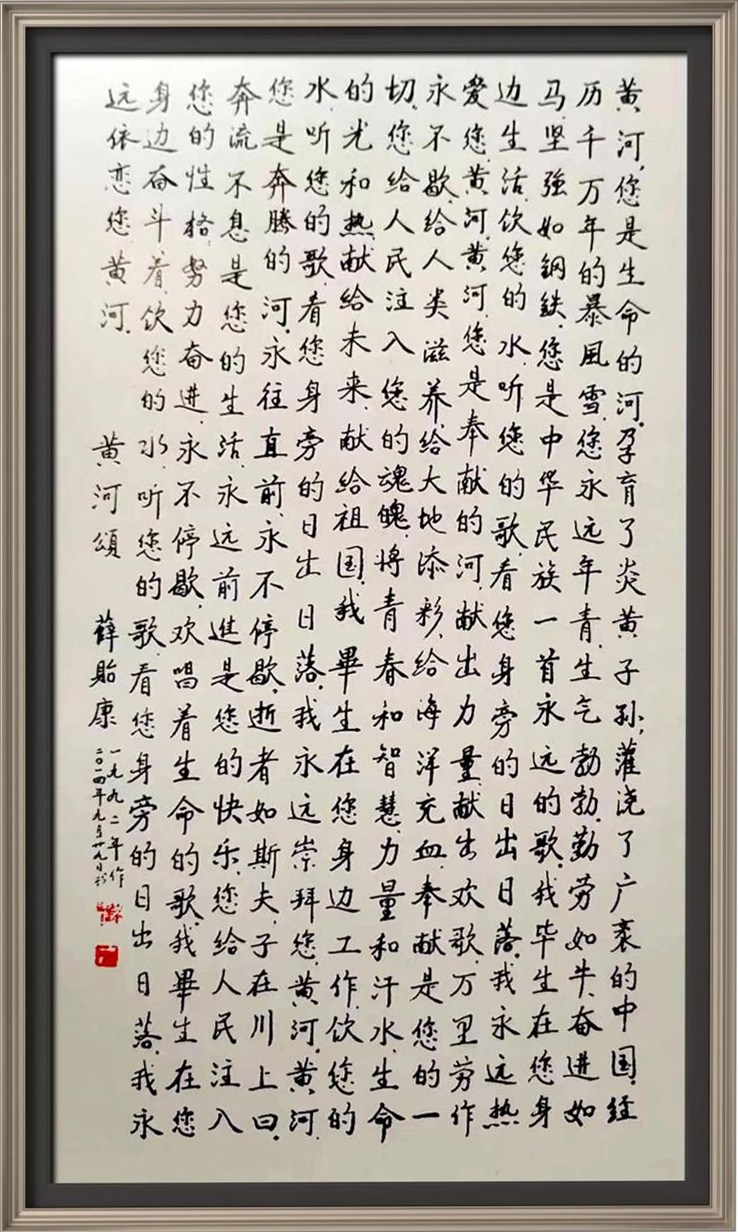 黄河,您是生命的河,孕育了炎黄子孙,灌浇了广袤的中国,经
历千万年的暴風雪,您永远年青,生气勃勃,勤劳如牛,奋进如
马,坚強如鋼鉄,您是中华民族一首永远的歌,我毕生在您身
边生活,饮您的水,听您的歌,看您身旁的日出日落,我永远热
爱您,黄河,黄河,您是奉献的河,献出力量,献出欢歌,万里劳作
永不歇,给人类滋养,给大地添彩,给海洋充血,奉献是您的一
切,您给人民注入您的魂魄,将青春和智慧,力量和汗水,生命
的光和热,献给未来,献给祖国,我畢生在您身边工作,饮您的
水,听您的歌,看您身旁的日出日落,我永远崇拜您,黄河,黄河,
您是奔腾的河,永往直前,永不停歇,逝者如斯夫,子在川上曰,
奔流不息是您的生活,永远前進是您的快乐,您给人民注入
您的性格,努力奋進,永不停歇,欢唱着生命的歌,我畢生在您
身边奋斗着,饮您的水,听您的歌,看您身旁的日出日落,我永
远依恋您,黄河. 黄河頌 薛贻康
一九九二年作
二〇一四年九月廿九日书